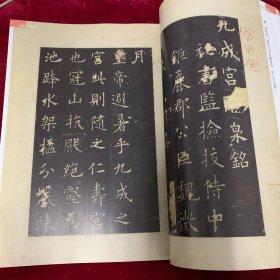 九成宮泉銘
祕書監撿挍侍中
鉅鹿郡公臣魏徵
月
皇帝避暑乎九成之
宮此則隨之仁壽宮
也冠山抗殿絕壑為
池跨水架楹分巖竦